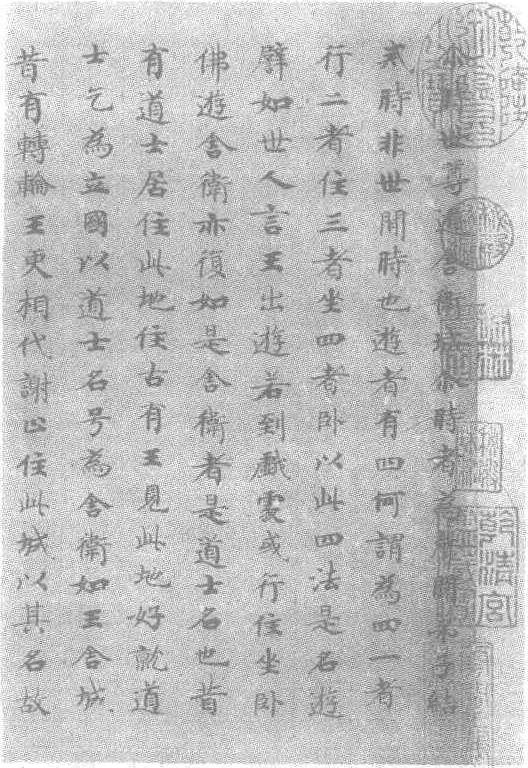 時世尊遊舍衛城 時者為 時弟子結
戒時非世間時也遊者有四何謂為四一者
行二者住三者坐四者卧以此四法是名遊
譬如世人言王出遊若到戲處或行住坐卧
佛遊舍衛亦復如是舍衛者是道士名也昔
有道士居住此地往古有王見此地好就道
士乞為立國以道士名号為舍衛如王舍城
昔有轉輪王更相代謝止住此城以其名故
乾清宮